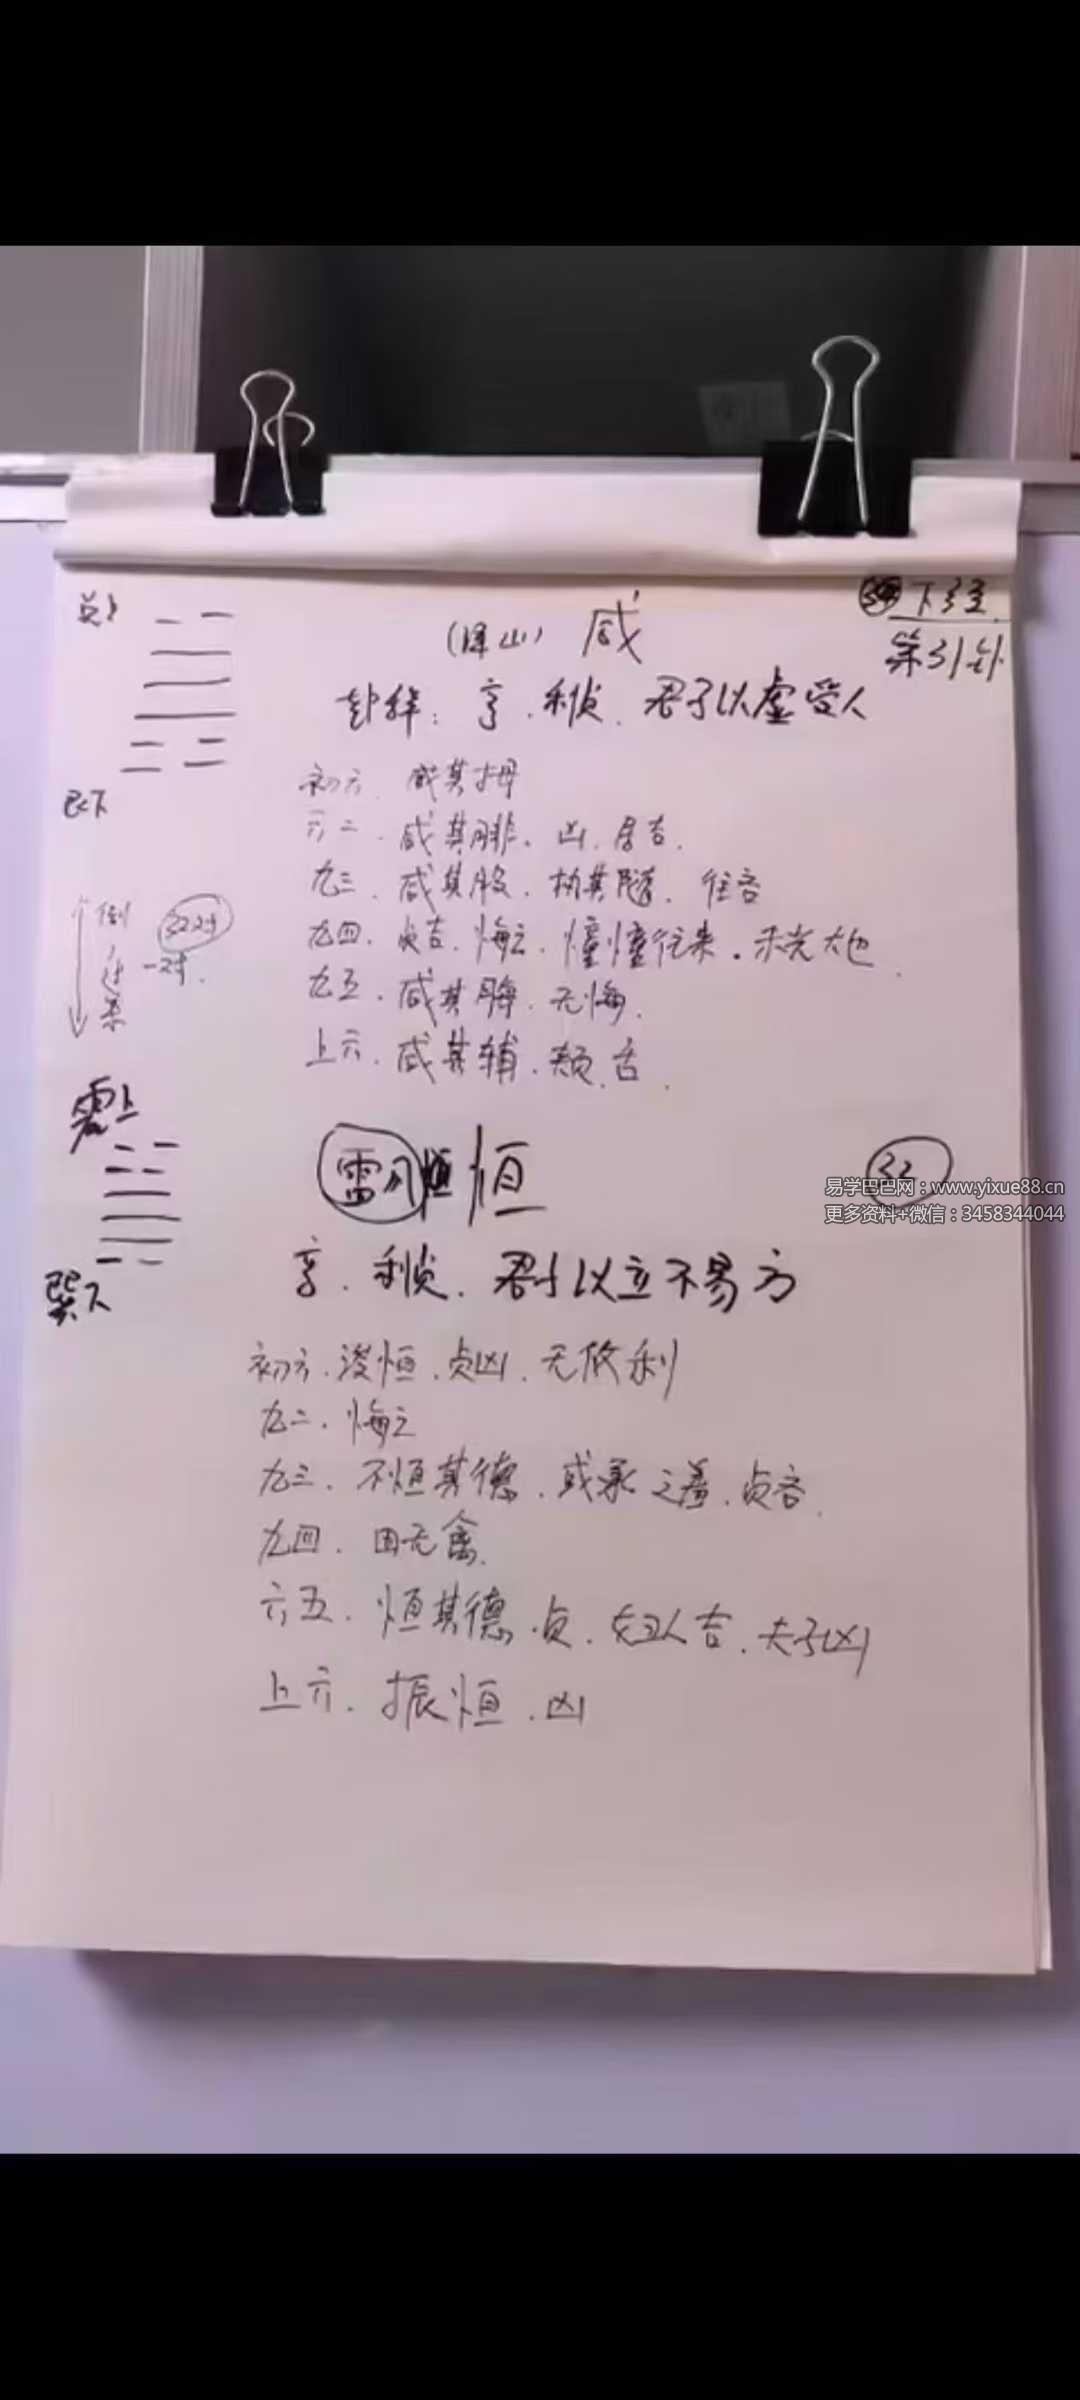 兑上
(泽山) 咸
下经
第31卦
卦辞：亨．利贞．君子以虚受人
初六．咸其拇
六二．咸其腓．凶．居吉．
艮下
九三．咸其股．执其随．往吝
九四．贞吉．悔亡．憧憧往来．未光大也．
倒
32对
一对．
九五．咸其脢．无悔．
上六．咸其辅．颊．舌．
震上
雷风恒 恒
32
易学巴巴网：www.yixue88.cn
更多资料+微信：3458344044
亨．利贞．君子以立不易方
巽下
初六．浚恒．贞凶．无攸利
九二．悔亡
九三．不恒其德．或承之羞．贞吝．
九四．田无禽．
六五．恒其德．贞．妇人吉．夫子凶
上六．振恒．凶